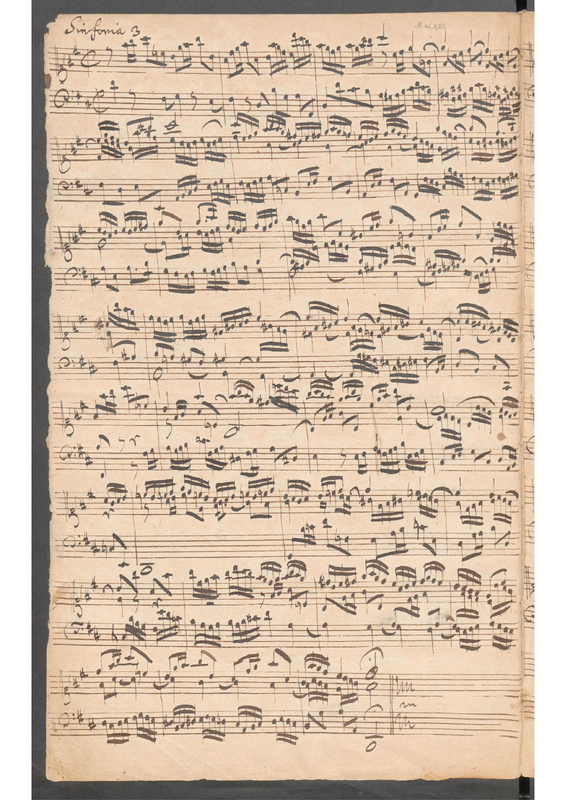 Sinfonia 3